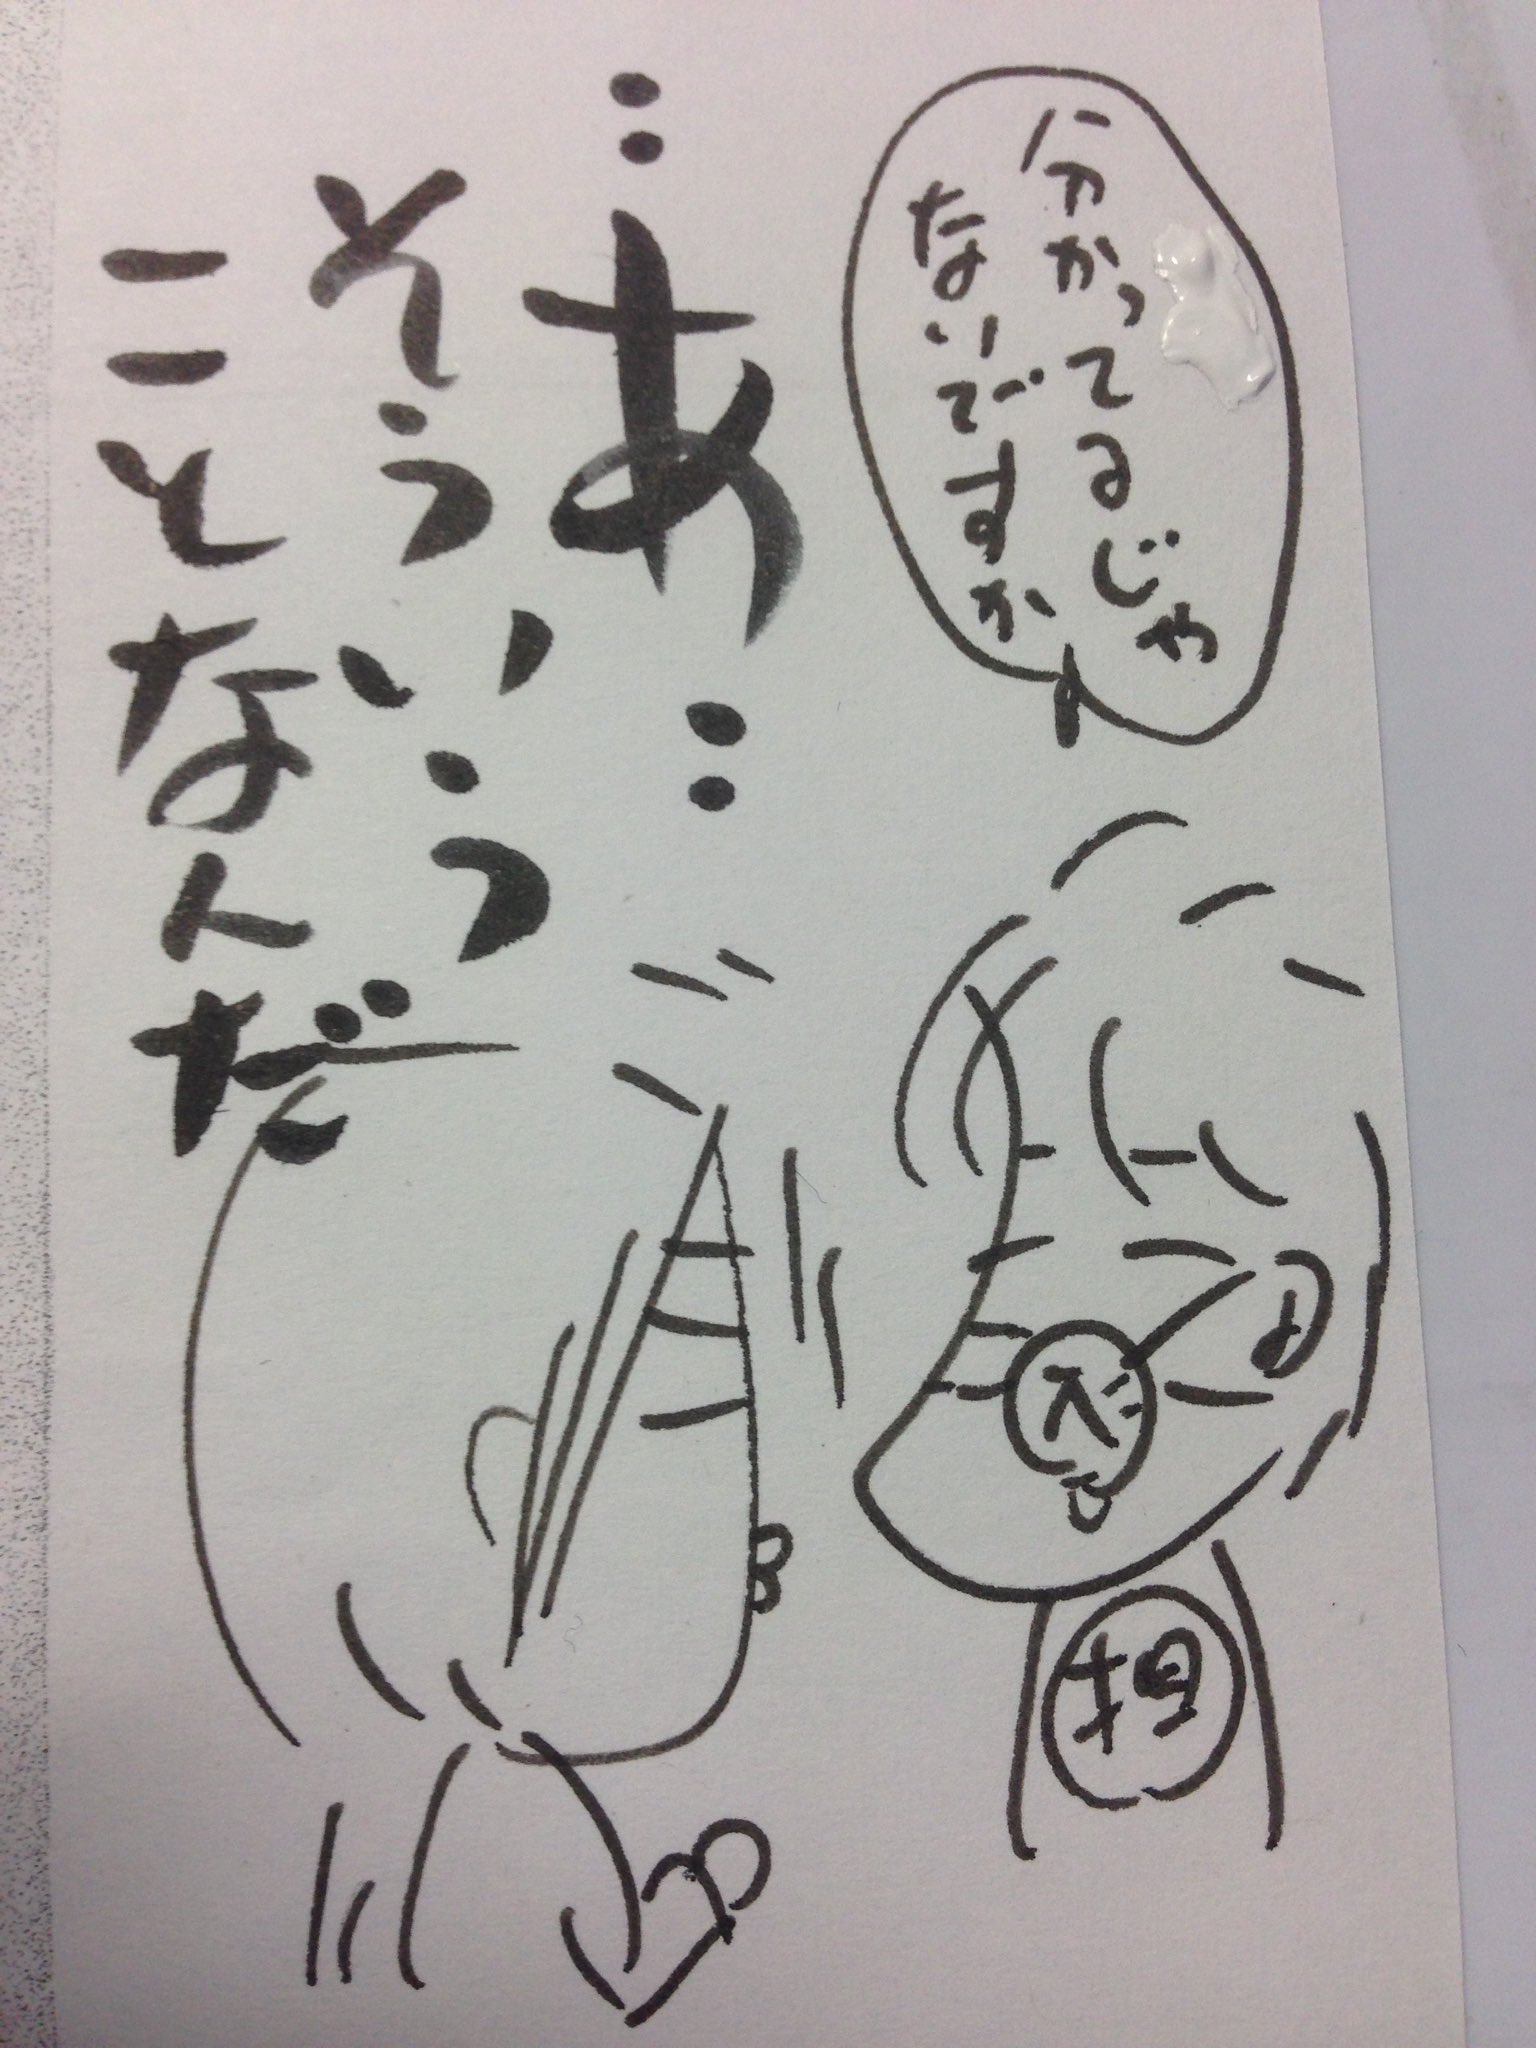 分かってるじゃ
ないですか
…あ…
そういう
ことなんだ
担